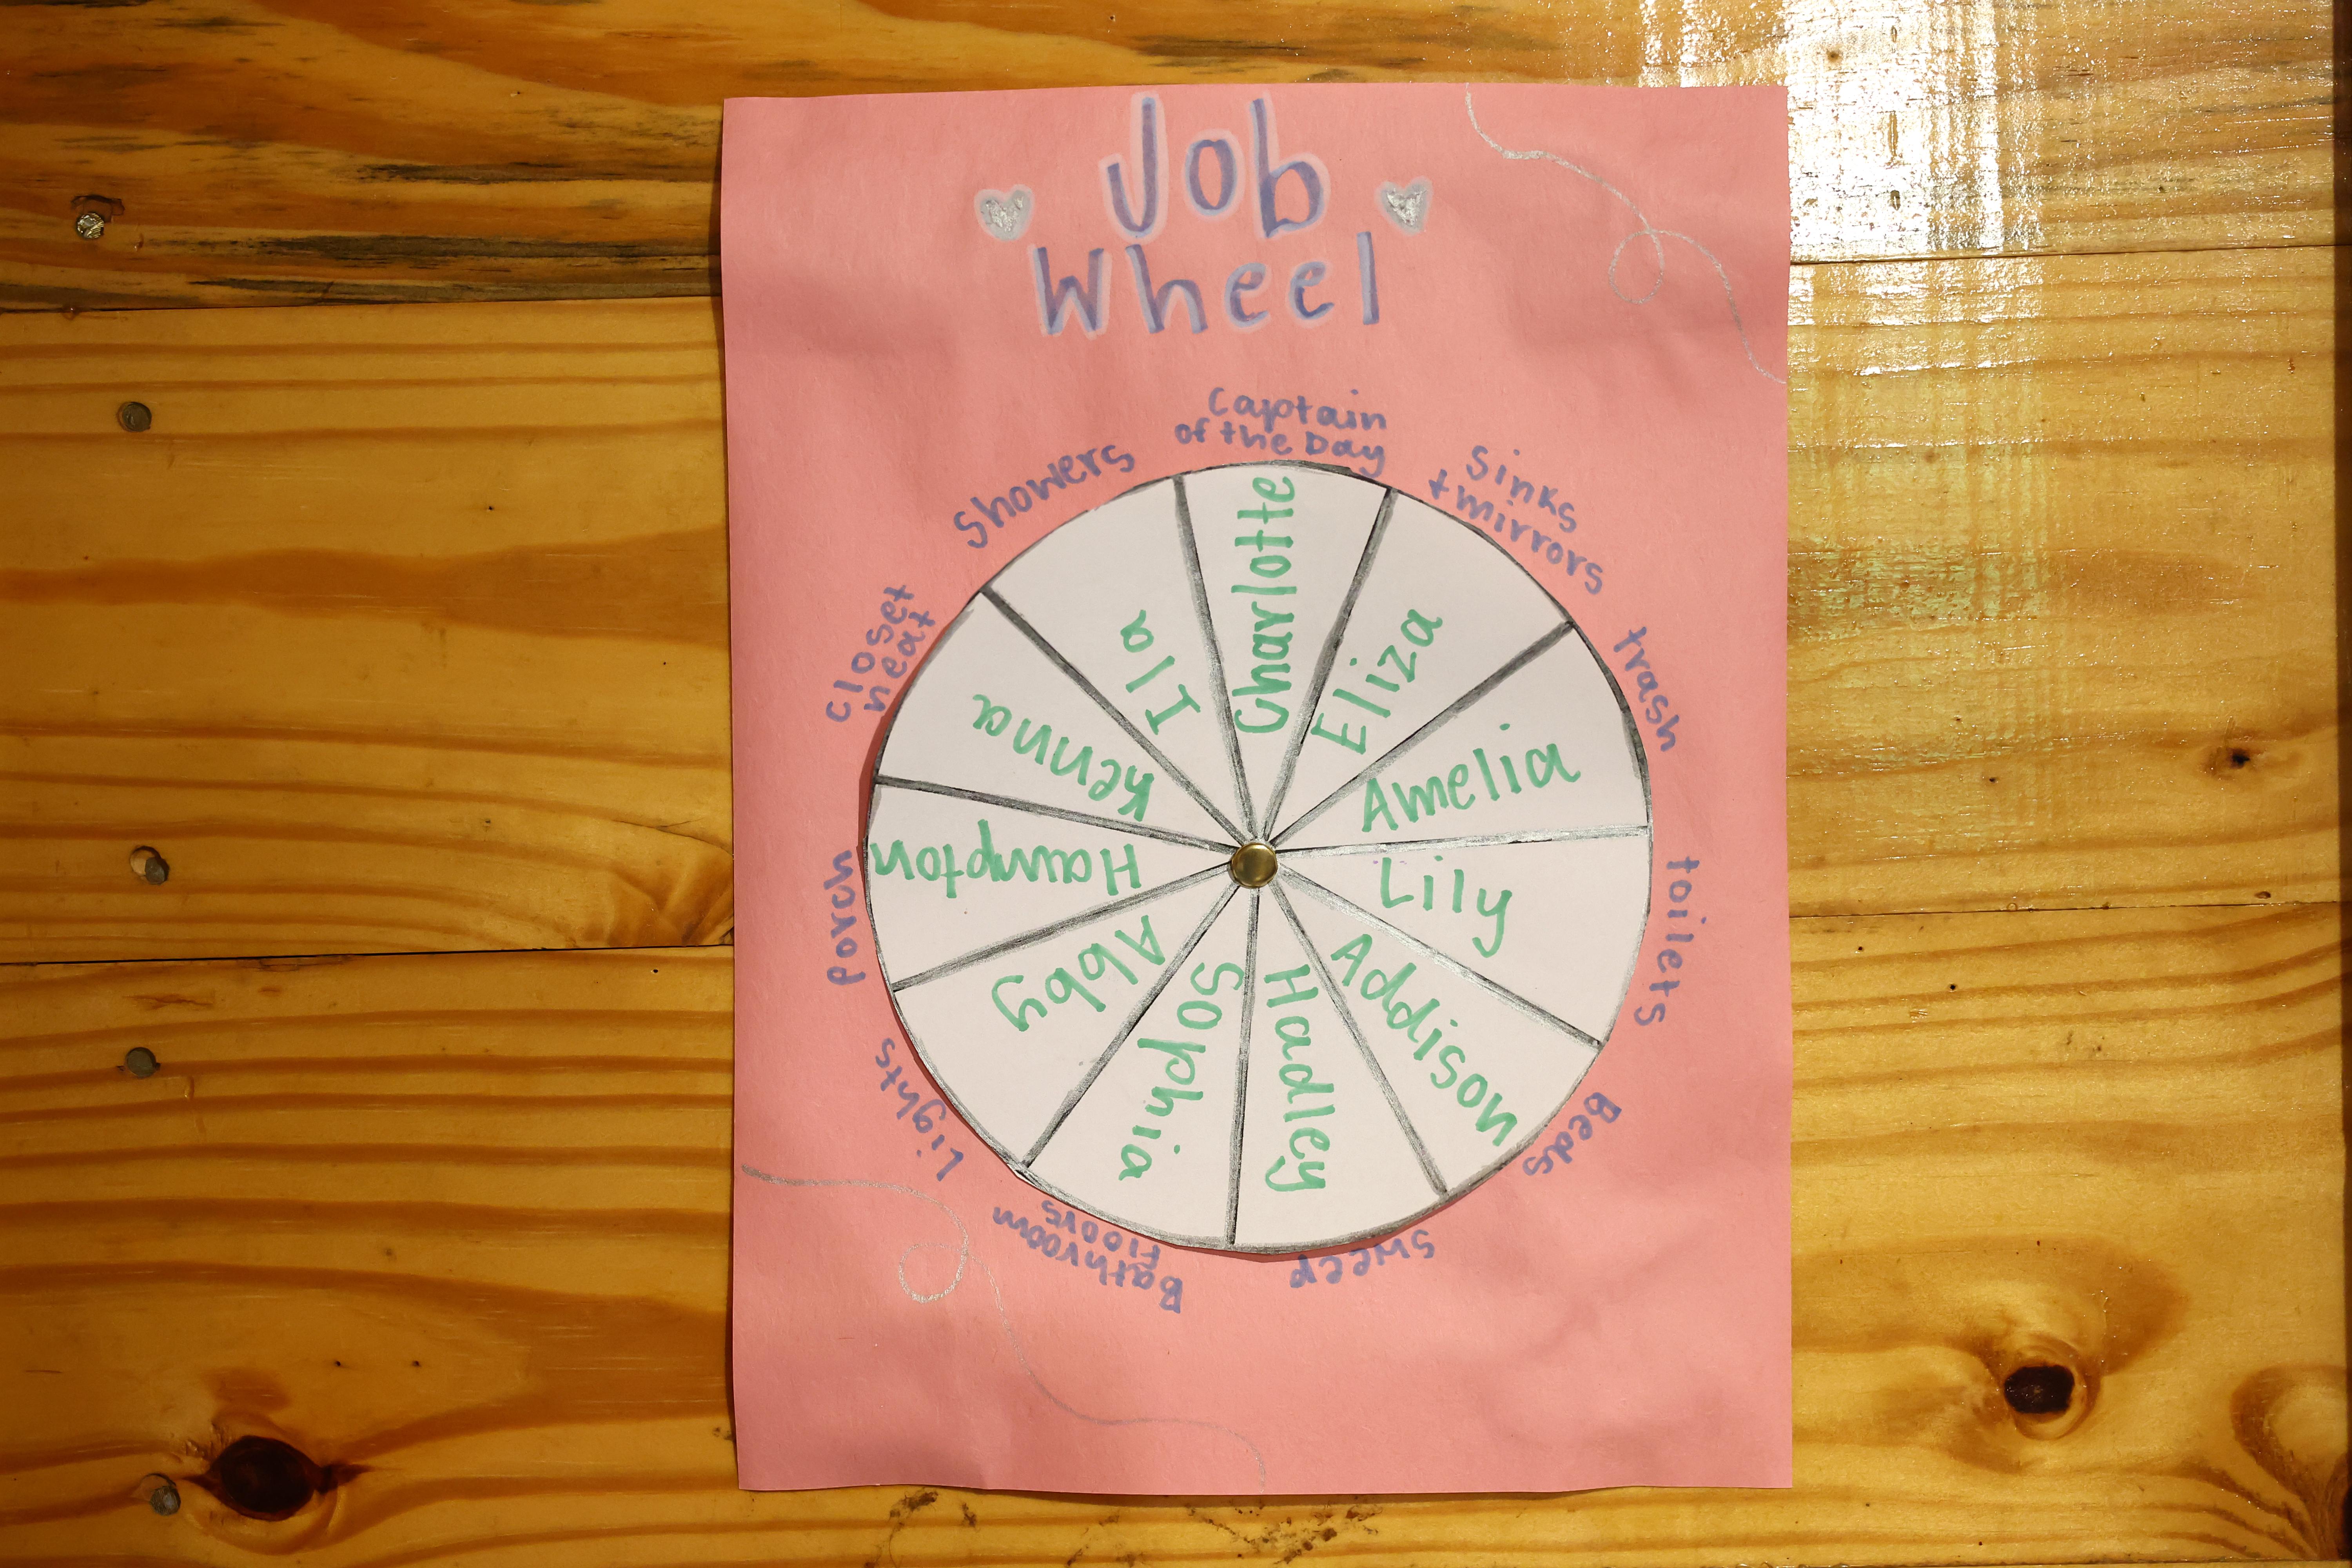 Job
Wheel
Captain
of the Day
Sinks
+mirrors
trash
toilets
Beds
Sweep
Bathroom
Floors
Lights
Porch
Closet
neat
Showers
Charlotte
Eliza
Amelia
Lily
Addison
Hadley
Sophia
Abby
Hampton
Kenna
Ila